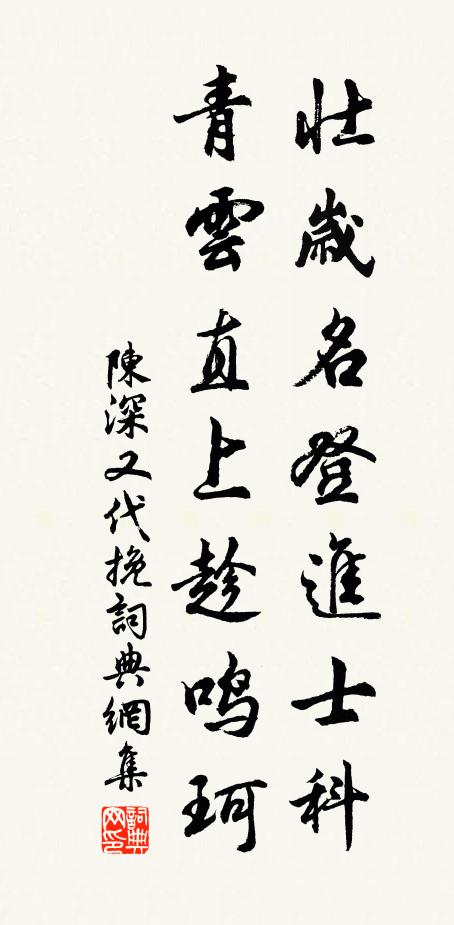 壯歲名登進士科
青雲直上趁鳴珂
陳深又代挽詞典網集
詞典网印